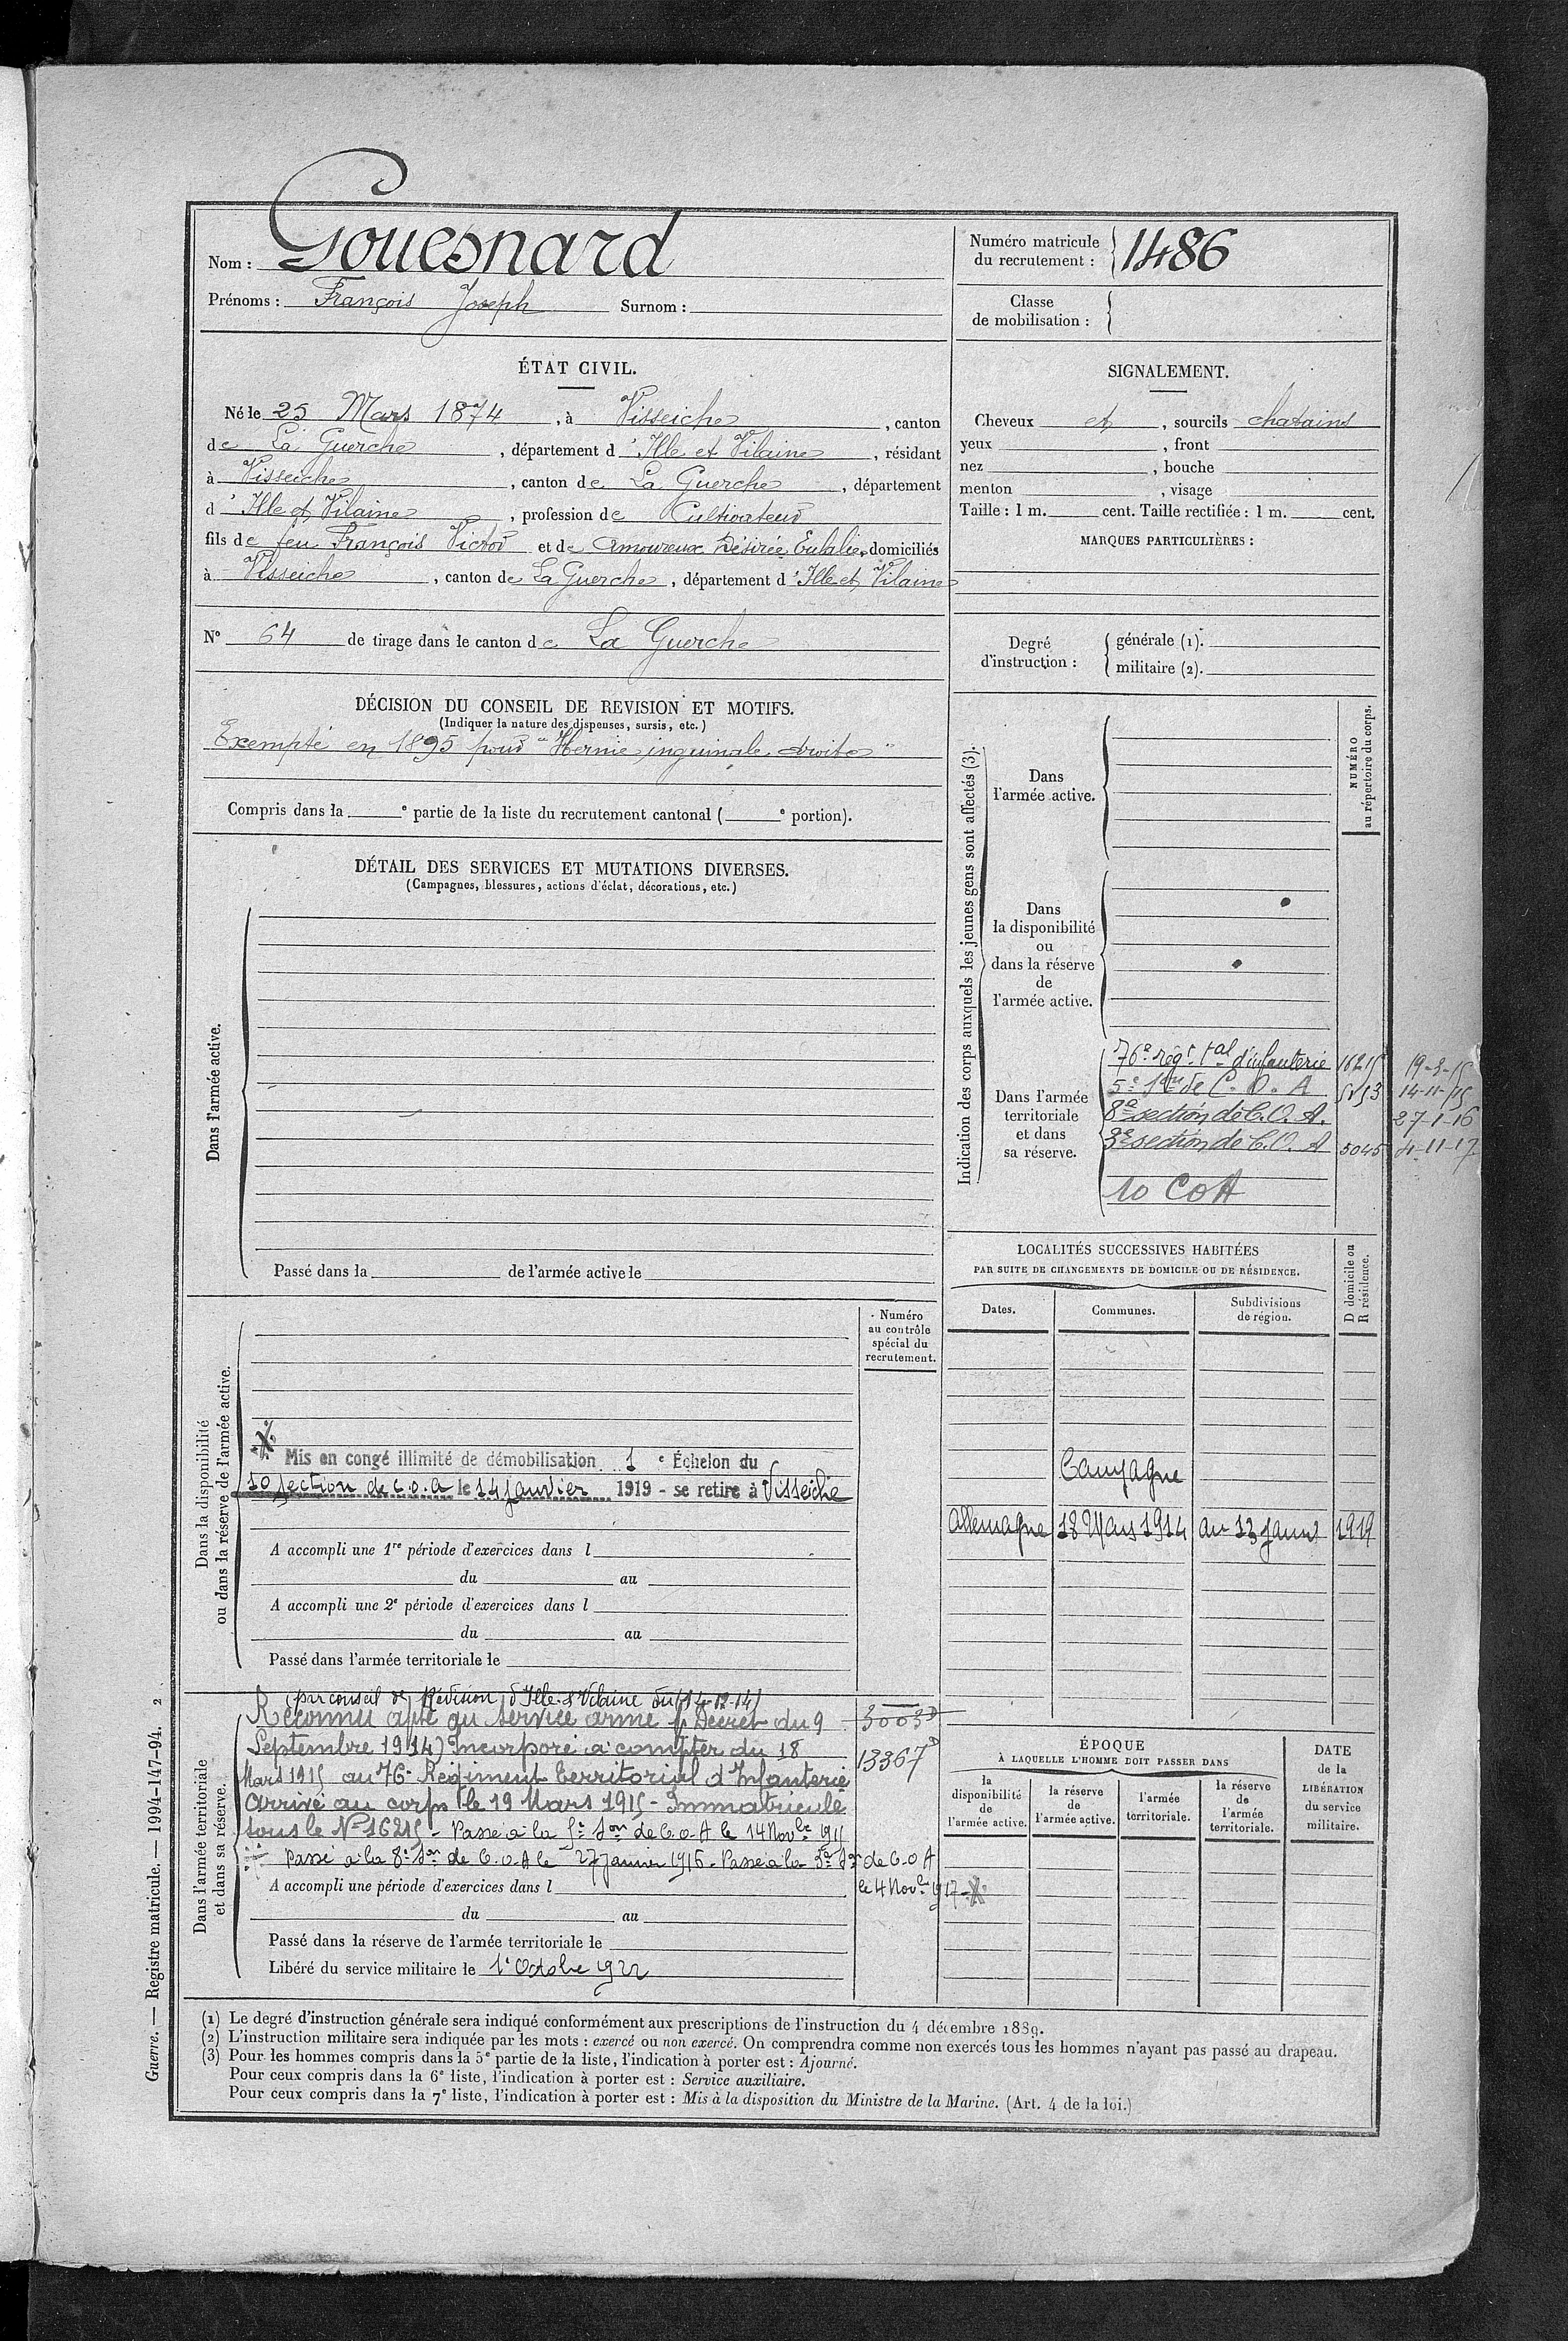 Nom : Gouesnard
Prénoms : François Joseph Surnom :
Numéro matricule
du recrutement : 1486
Classe
de mobilisation :
ÉTAT CIVIL.
Né le 25 Mars 1874, à Visseiche, canton
de La Guerche, département d'Ille et Vilaine, résidant
à Visseiche, canton de La Guerche, département
d'Ille et Vilaine, profession de Cultivateur
fils de feu François Victor et de Amoureux Désirée Eulalie, domiciliés
à Visseiche, canton de La Guerche, département d'Ille et Vilaine
N° 64 de tirage dans le canton de La Guerche
SIGNALEMENT.
Cheveux et, sourcils chatains
yeux, front
nez, bouche
menton, visage
Taille : 1 m. cent. Taille rectifiée : 1 m. cent.
MARQUES PARTICULIÈRES :
Degré
d'instruction :
générale (1).
militaire (2).
DÉCISION DU CONSEIL DE REVISION ET MOTIFS.
(Indiquer la nature des dispenses, sursis, etc.)
Exempté en 1895 pour "Hernie inguinale droite"
Compris dans la e partie de la liste du recrutement cantonal ( e portion).
DÉTAIL DES SERVICES ET MUTATIONS DIVERSES.
(Campagnes, blessures, actions d'éclat, décorations, etc.)
Dans l'armée active.
Passé dans la de l'armée active le
Indication des corps auxquels les jeunes gens sont affectés (3).
NUMÉRO
au répertoire du corps.
Dans
l'armée active.
Dans
la disponibilité
ou
dans la réserve
de
l'armée active.
Dans l'armée
territoriale
et dans
sa réserve.
76e régt tal d'infanterie 16215 19-3-15
5e son de C. O. A 14-11-15
8e section de C.O.A. 27-1-16
3e section de C.O.A 5045 4-11-17
10 COA
LOCALITÉS SUCCESSIVES HABITÉES
PAR SUITE DE CHANGEMENTS DE DOMICILE OU DE RÉSIDENCE.
Dates.
Communes.
Subdivisions
de région.
D domicile ou
R résidence.
Campagne
Allemagne 18 Mars 1914 au 13 Janv 1919
Dans la disponibilité
ou dans la réserve de l'armée active.
Numéro
au contrôle
spécial du
recrutement.
Mis en congé illimité de démobilisation 1 e Échelon du
10 section de C.O.A le 14 Janvier 1919 - se retire à Visseiche
A accompli une 1re période d'exercices dans l
du au
A accompli une 2e période d'exercices dans l
du au
Passé dans l'armée territoriale le
Dans l'armée territoriale
et dans sa réserve.
(par conseil de Révision d'Ille & Vilaine du 14-12-14)
Reconnu apte au service armé (Décret du 9 3003D
Septembre 1914) Incorporé à compter du 18 13367D
Mars 1915 au 76e Régiment territorial d'Infanterie
Arrivé au corps le 19 Mars 1915 - Immatriculé
sous le N° 16215 - Passé à la 5e Son de C.O.A le 14 Novbre 1915
Passé à la 8e Son de C.O.A le 27 janvier 1916 - Passé à la 3e Son de C.O A
le 4 Novbre 1917
A accompli une période d'exercices dans l
du au
Passé dans la réserve de l'armée territoriale le
Libéré du service militaire le 1er Octobre 1922
ÉPOQUE
À LAQUELLE L'HOMME DOIT PASSER DANS
la
disponibilité
de
l'armée active.
la réserve
de
l'armée active.
l'armée
territoriale.
la réserve
de
l'armée
territoriale.
DATE
de la
LIBÉRATION
du service
militaire.
(1) Le degré d'instruction générale sera indiqué conformément aux prescriptions de l'instruction du 4 décembre 1889.
(2) L'instruction militaire sera indiquée par les mots : exercé ou non exercé. On comprendra comme non exercés tous les hommes n'ayant pas passé au drapeau.
(3) Pour les hommes compris dans la 5e partie de la liste, l'indication à porter est : Ajourné.
Pour ceux compris dans la 6e liste, l'indication à porter est : Service auxiliaire.
Pour ceux compris dans la 7e liste, l'indication à porter est : Mis à la disposition du Ministre de la Marine. (Art. 4 de la loi.)
Guerre. — Registre matricule. — 1994-147-94. 2